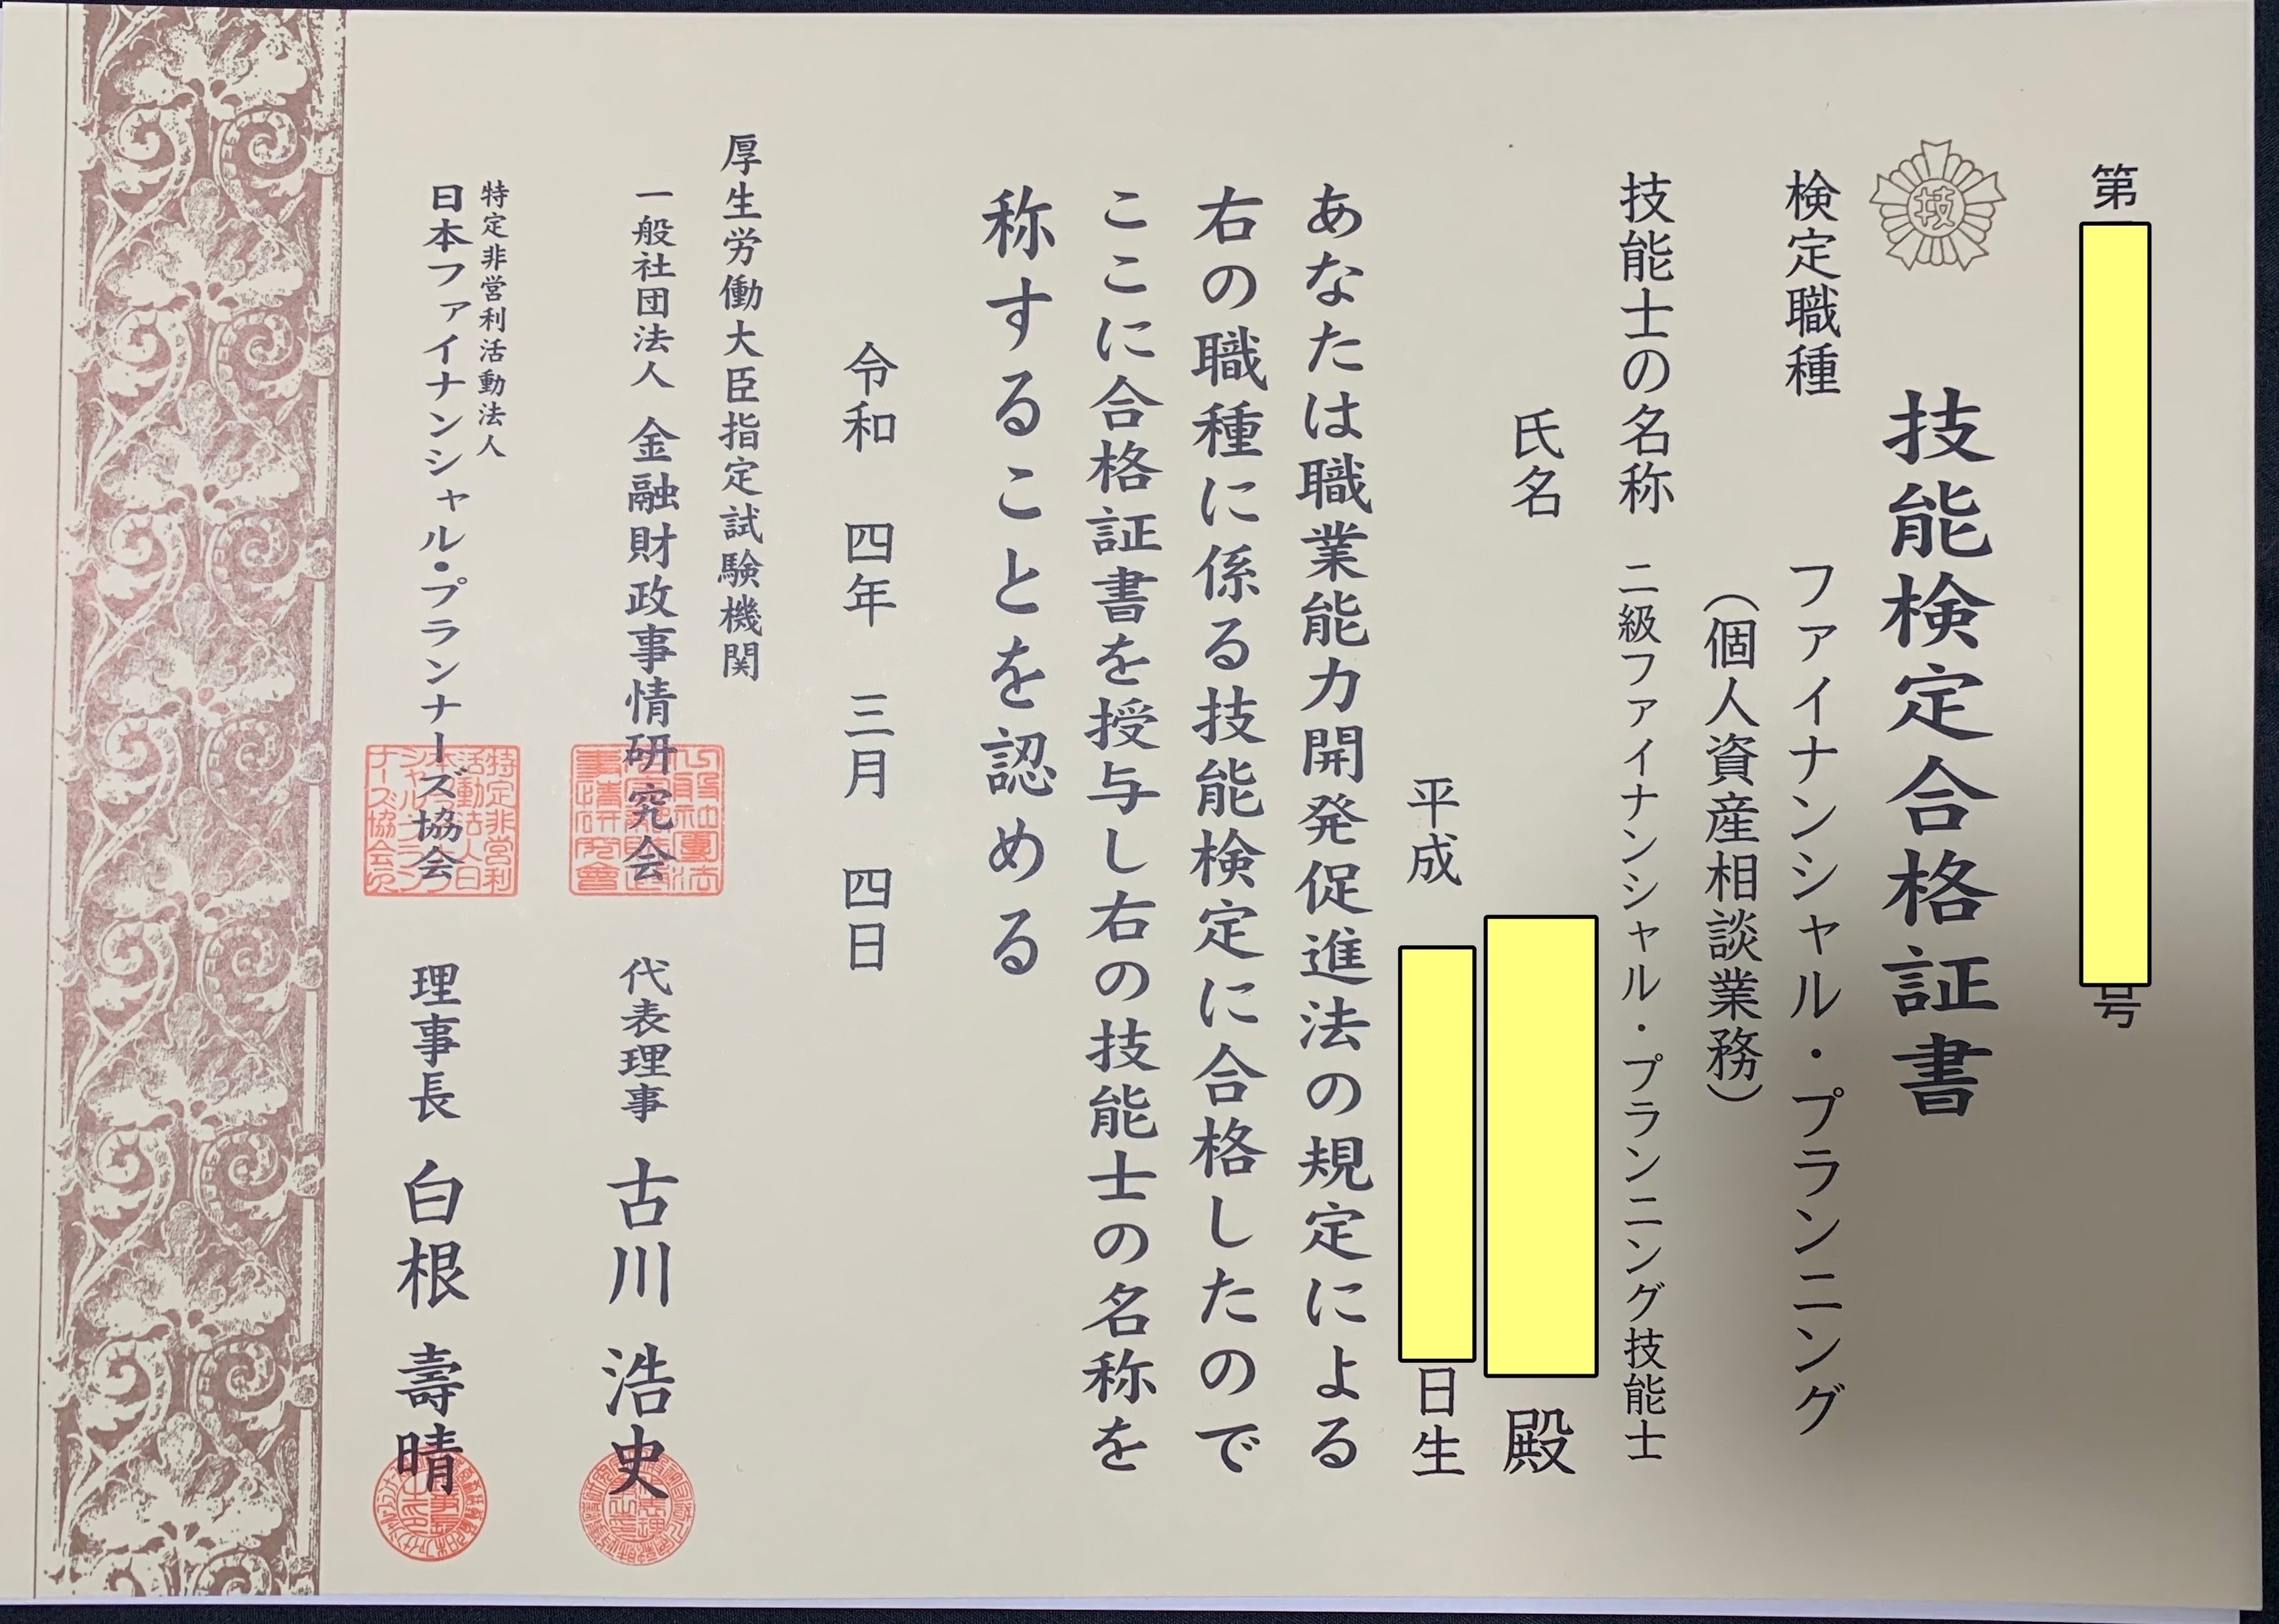 第
号
技
技能検定合格証書
検定職種 ファイナンシャル・プランニング
(個人資産相談業務)
技能士の名称 二級ファイナンシャル・プランニング技能士
氏名 殿
平成 日生
あなたは職業能力開発促進法の規定による
右の職種に係る技能検定に合格したので
ここに合格証書を授与し右の技能士の名称を
称することを認める
令和 四年 三月 四日
厚生労働大臣指定試験機関
一般社団法人 金融財政事情研究会 代表理事 古川 浩史
特定非営利活動法人
日本ファイナンシャル・プランナーズ協会 理事長 白根 壽晴